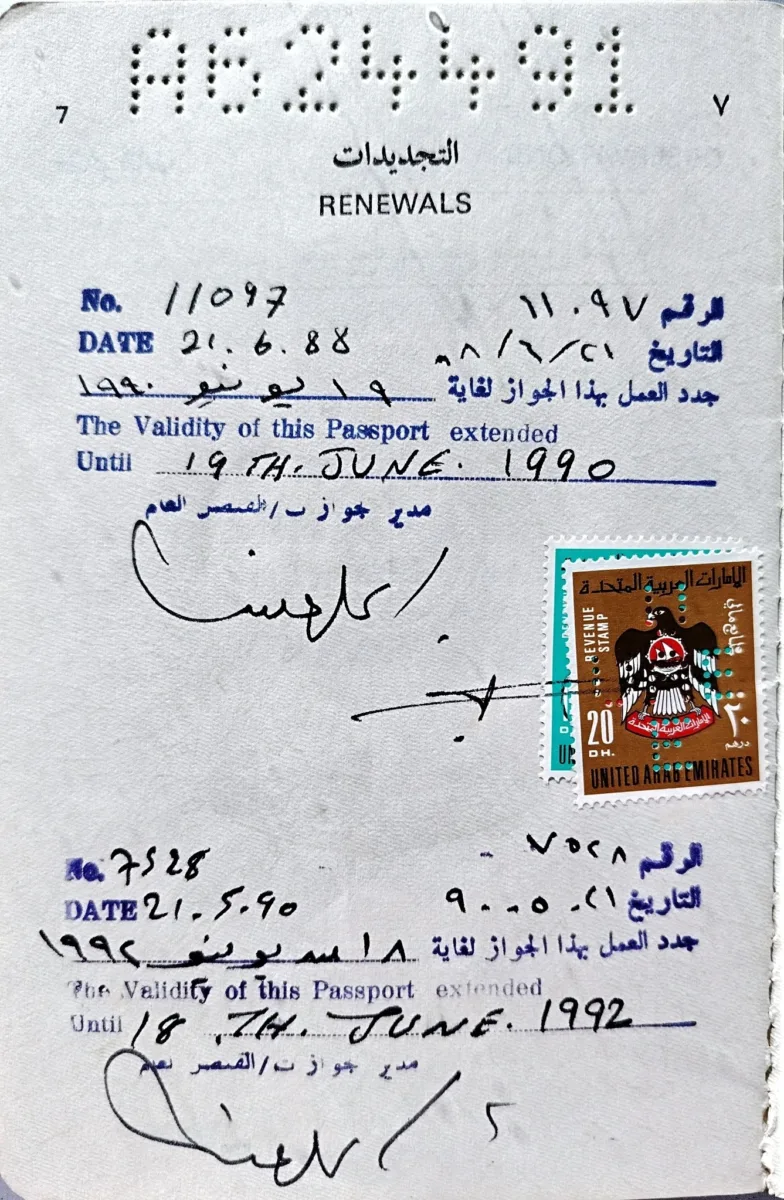 A624491
7 ٧
التجديدات
RENEWALS
No. 11097 الرقم ١١٠٩٧
DATE 21.6.88 التاريخ ٢١/٦/٨٨
جدد العمل بهذا الجواز لغاية ١٩ يونيو ١٩٩٠
The Validity of this Passport extended
Until 19TH. JUNE. 1990
مدير جوازات/القنصل العام
الامارات العربية المتحدة
REVENUE STAMP
20 DH. ٢٠ درهم
الإمارات العربية المتحدة
UNITED ARAB EMIRATES
No. 7528 الرقم ٧٥٢٨
DATE 21.5.90 التاريخ ٢١.٥.٩٠
جدد العمل بهذا الجواز لغاية ١٨ يونيو ١٩٩٢
The Validity of this Passport extended
Until 18.TH. JUNE. 1992